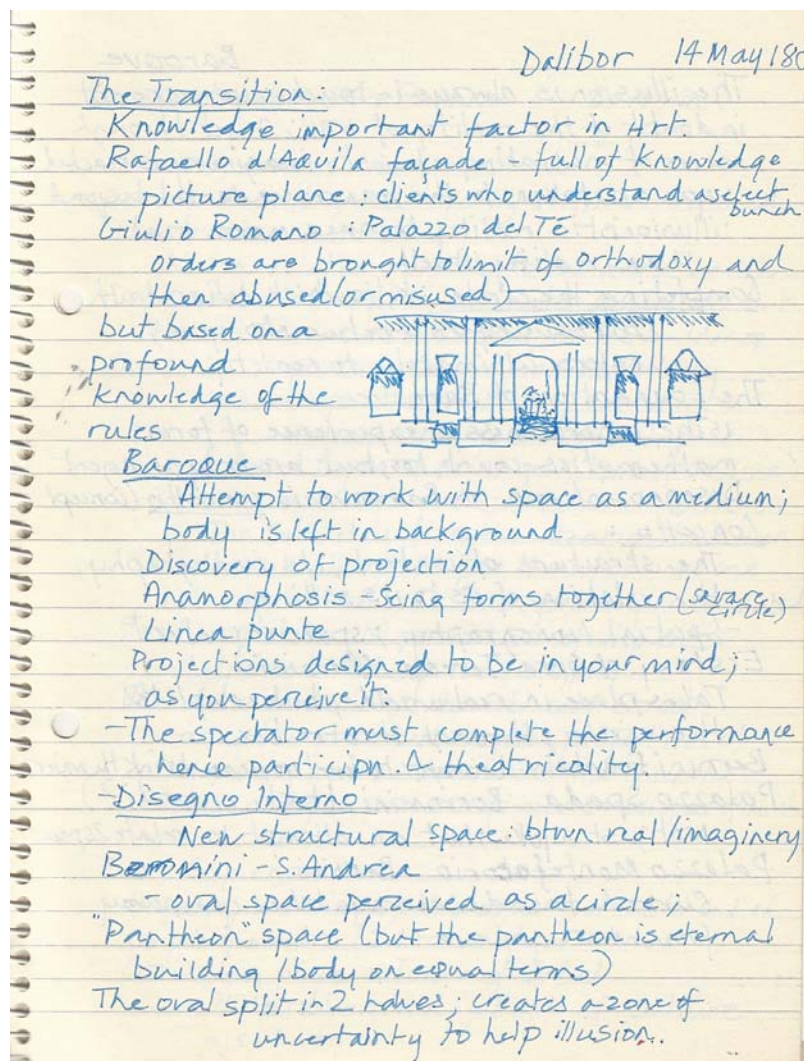 Dalibor 14 May 180
The Transition:
Knowledge important factor in Art.
Rafaello d'Aquila façade - full of Knowledge
picture plane: clients who understand a select
bunch
Giulio Romano: Palazzo del Té
orders are brought to limit of orthodoxy and
then abused (or misused)
but based on a
profound
knowledge of the
rules
Baroque
Attempt to work with space as a medium;
body is left in background
Discovery of projection
Anamorphosis - Seing forms together (square
circle)
Linea punte
Projections designed to be in your mind;
as you perceive it.
- The spectator must complete the performance
hence particpn. & theatricality.
- Disegno Interno
New structural space. btwn real/imaginery
Boromini - S. Andrea
- oval space perceived as a circle;
"Pantheon" space (but the pantheon is eternal
building (body on equal terms)
The oval split in 2 halves; creates a zone of
uncertainty to help illusion.